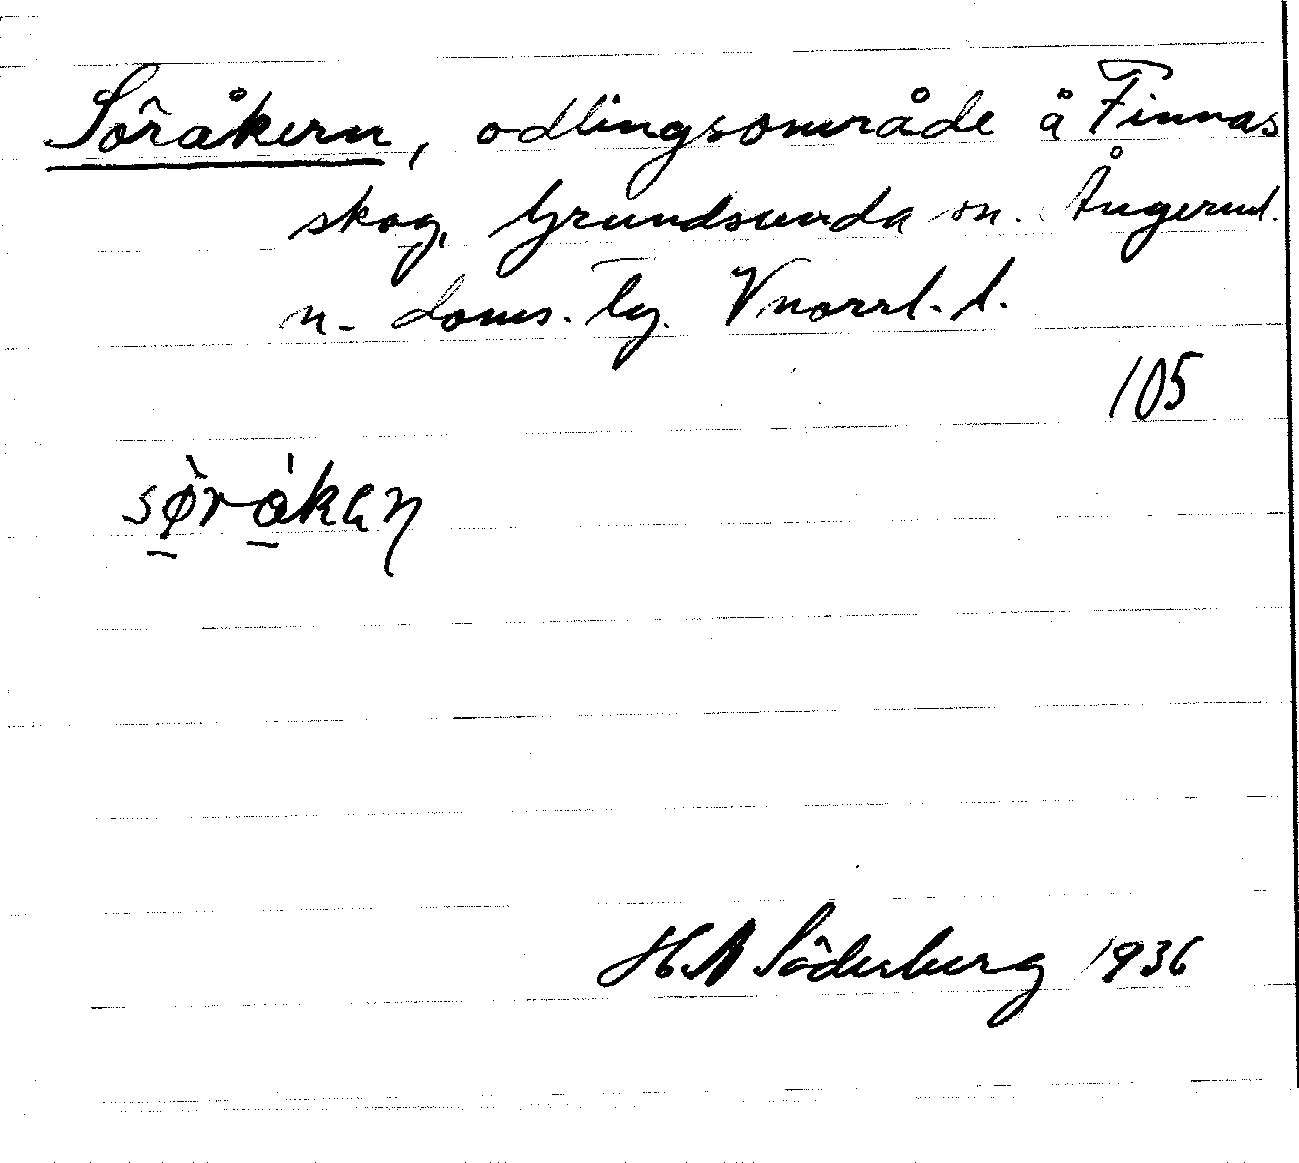 Söråkern, odlingsområde å Finnas
skog, Grundsunda sn. Ångerml.
n. doms. lg. Vnorrl. l.
105
søråkaη
H A Söderberg 1936